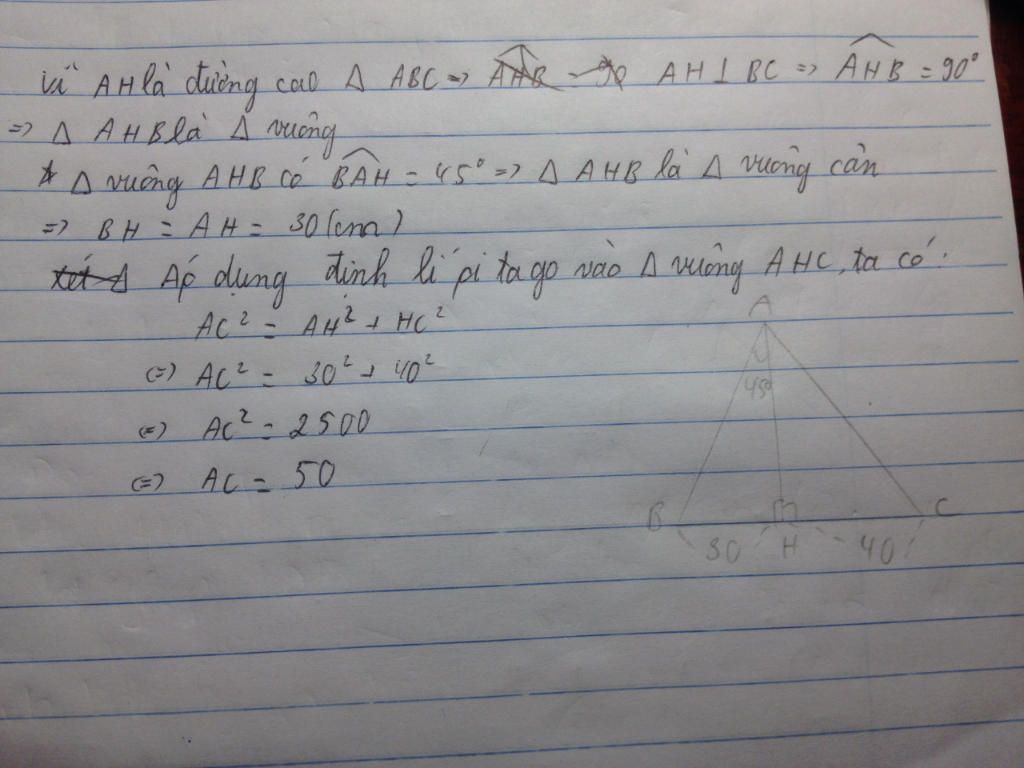 Vì AH là đường cao Δ ABC => AHB = 90 AH ⊥ BC => AHB = 90°
=> Δ AHB là Δ vuông
* Δ vuông AHB có BAH = 45° => Δ AHB là Δ vuông cân
=> BH = AH = 30(cm)
xét Δ Áp dụng định lí pi ta go vào Δ vuông AHC, ta có:
AC² = AH² + HC²
(=) AC² = 30² + 40²
(=) AC² = 2500
(=) AC = 50
A
45°
B
C
30
H
40